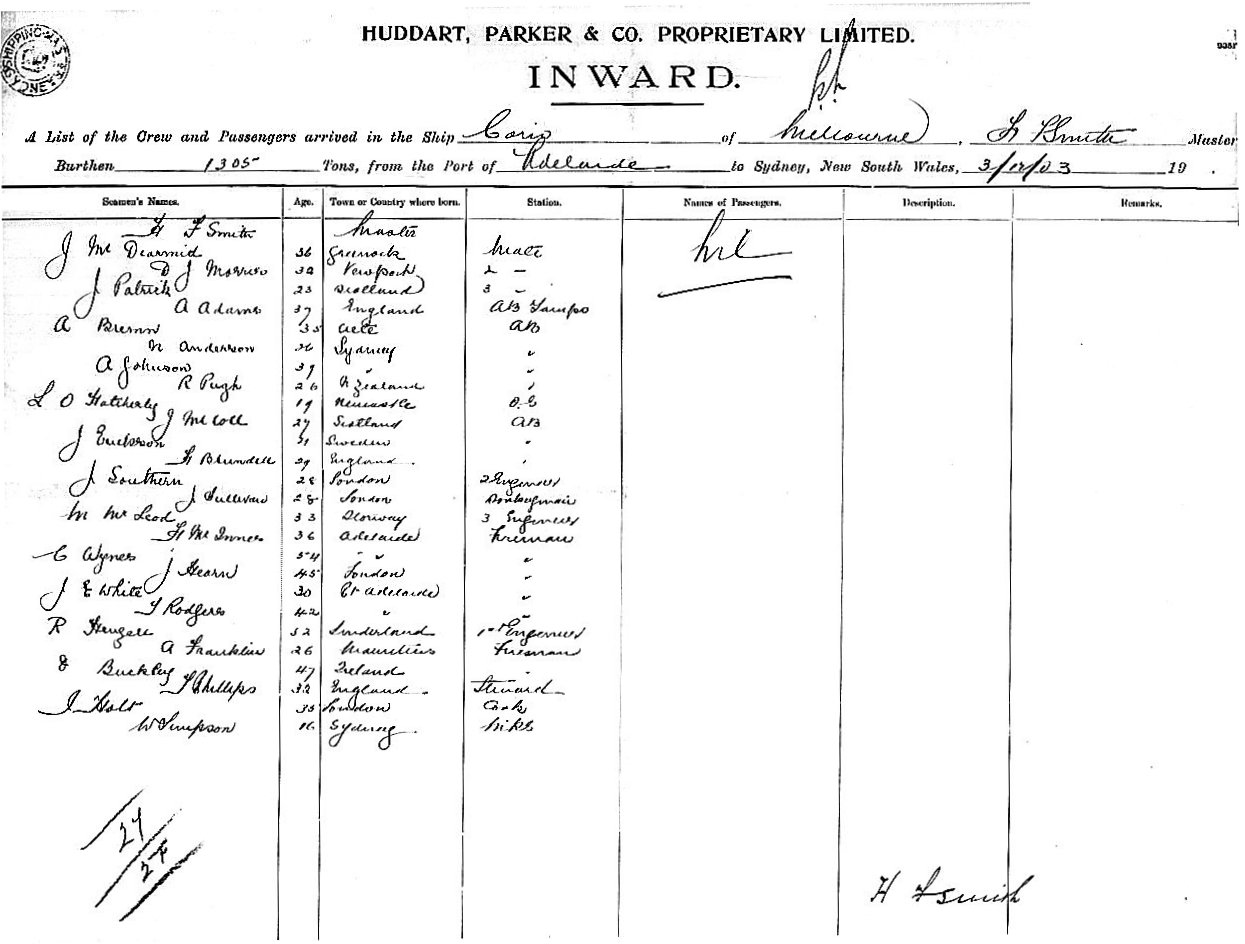 HUDDART, PARKER & CO. PROPRIETARY LIMITED.
INWARD.
A List of the Crew and Passengers arrived in the Ship Corio of Melbourne, H F Smith Master
Burthen 1305 Tons, from the Port of Adelaide to Sydney, New South Wales, 3/12/03 19 .
Seamen's Names. Age. Town or Country where born. Station. Names of Passengers. Description. Remarks.
H F Smith Master
J Mc Dearmid 36 Greenock Mate nil
D J Morris 32 Newport 2 -
J Patrick 23 Scotland 3 -
A Adams 37 England AB Lamps
A Bremn 35 AB
N Anderson 26 Sydney "
A Johnson 39 " "
R Pugh 26 N Zealand "
L O Hatherly 19 Newcastle O.S
J Mc Coll 27 Scotland AB
J Erickson 31 Sweden "
H Blundell 29 England "
J Southern 28 London 2 Engineer
J Sullivan 28 London Donkeyman
M Mc Leod 33 Stornway 3 Engineer
H Mc Innes 36 Adelaide Fireman
C Wynes 54 " "
J Hearn 45 London "
J E White 30 Pt Adelaide "
T Rodgers 42 " "
R 52 Sunderland 1st Engineer
A Franklin 26 Mauritius Fireman
J Buckley 47 Ireland "
T Phillips 32 England Steward
J Holt 35 London Cook
W Simpson 16 Sydney
27
27
H F Smith